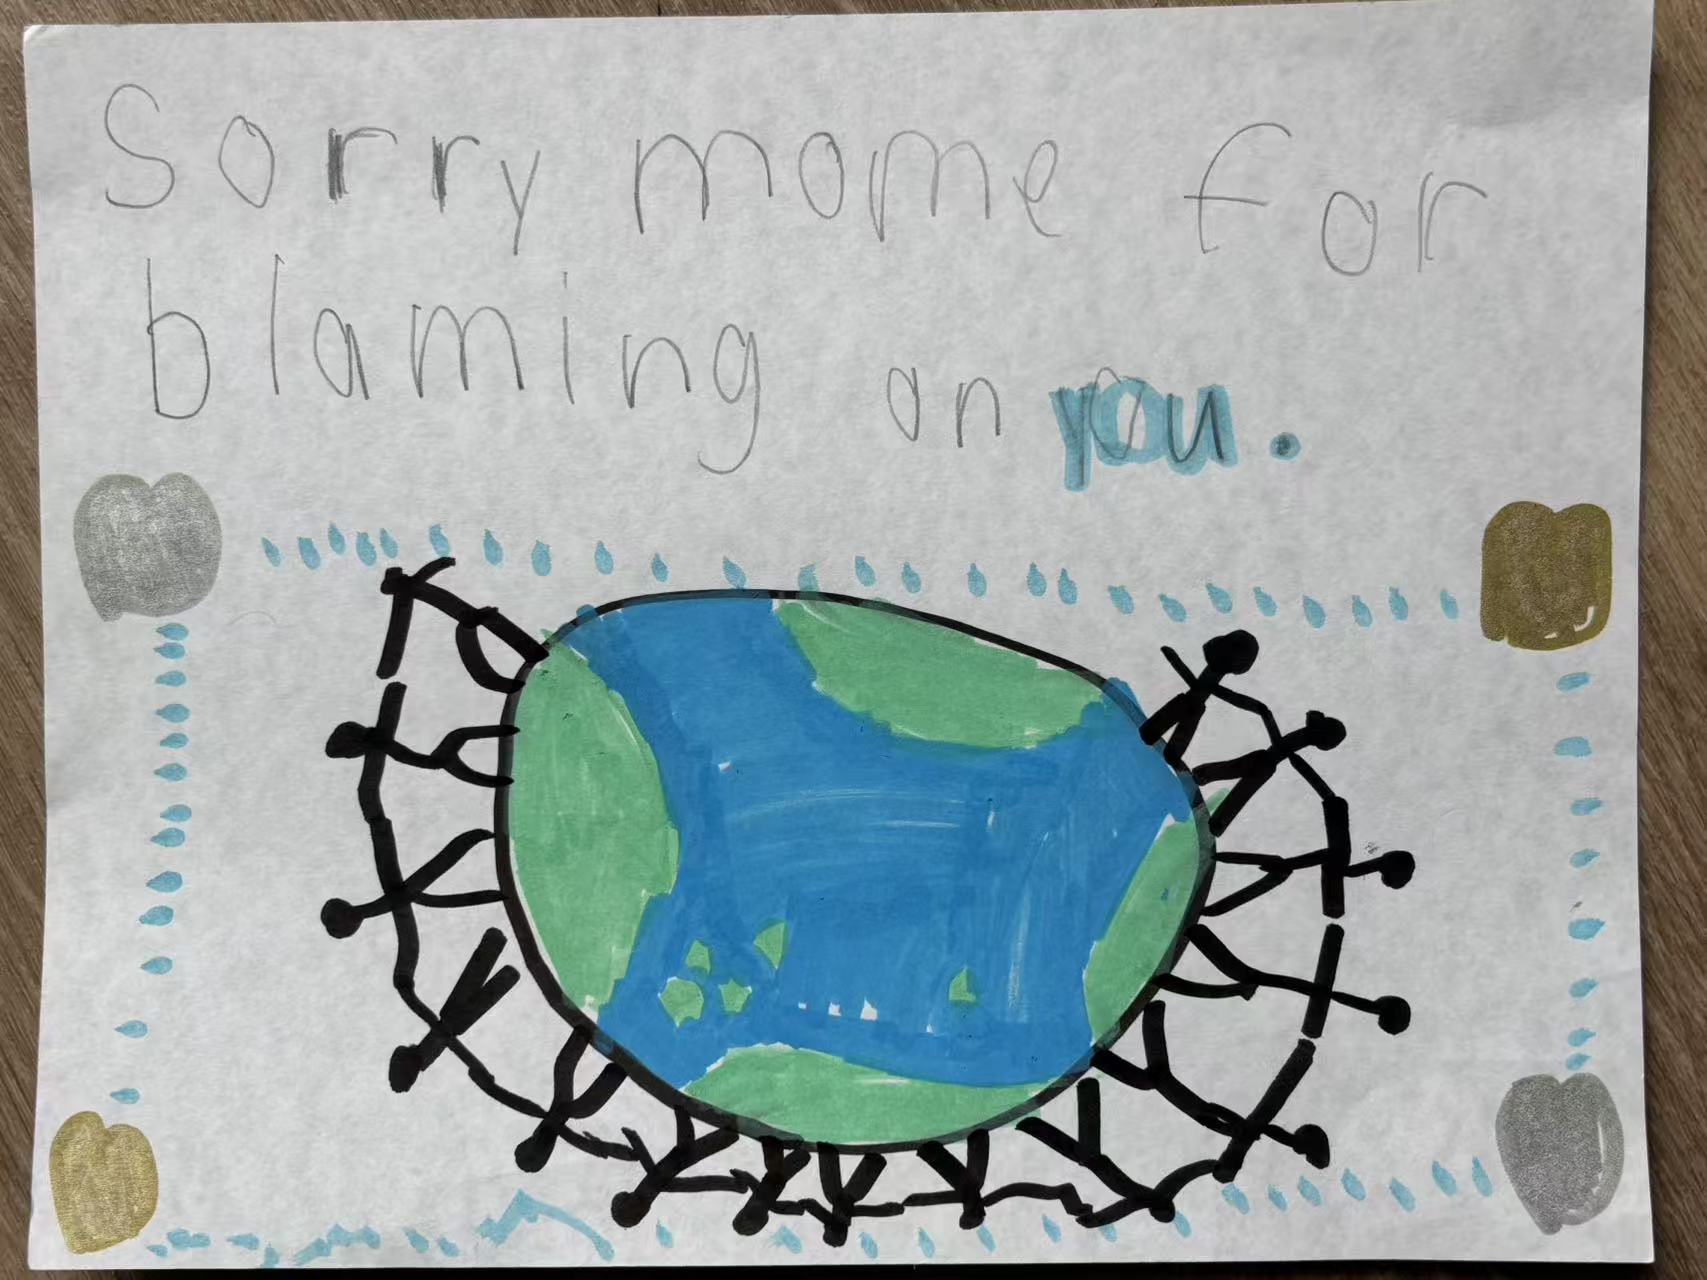 Sorry mome for
blaming on you.